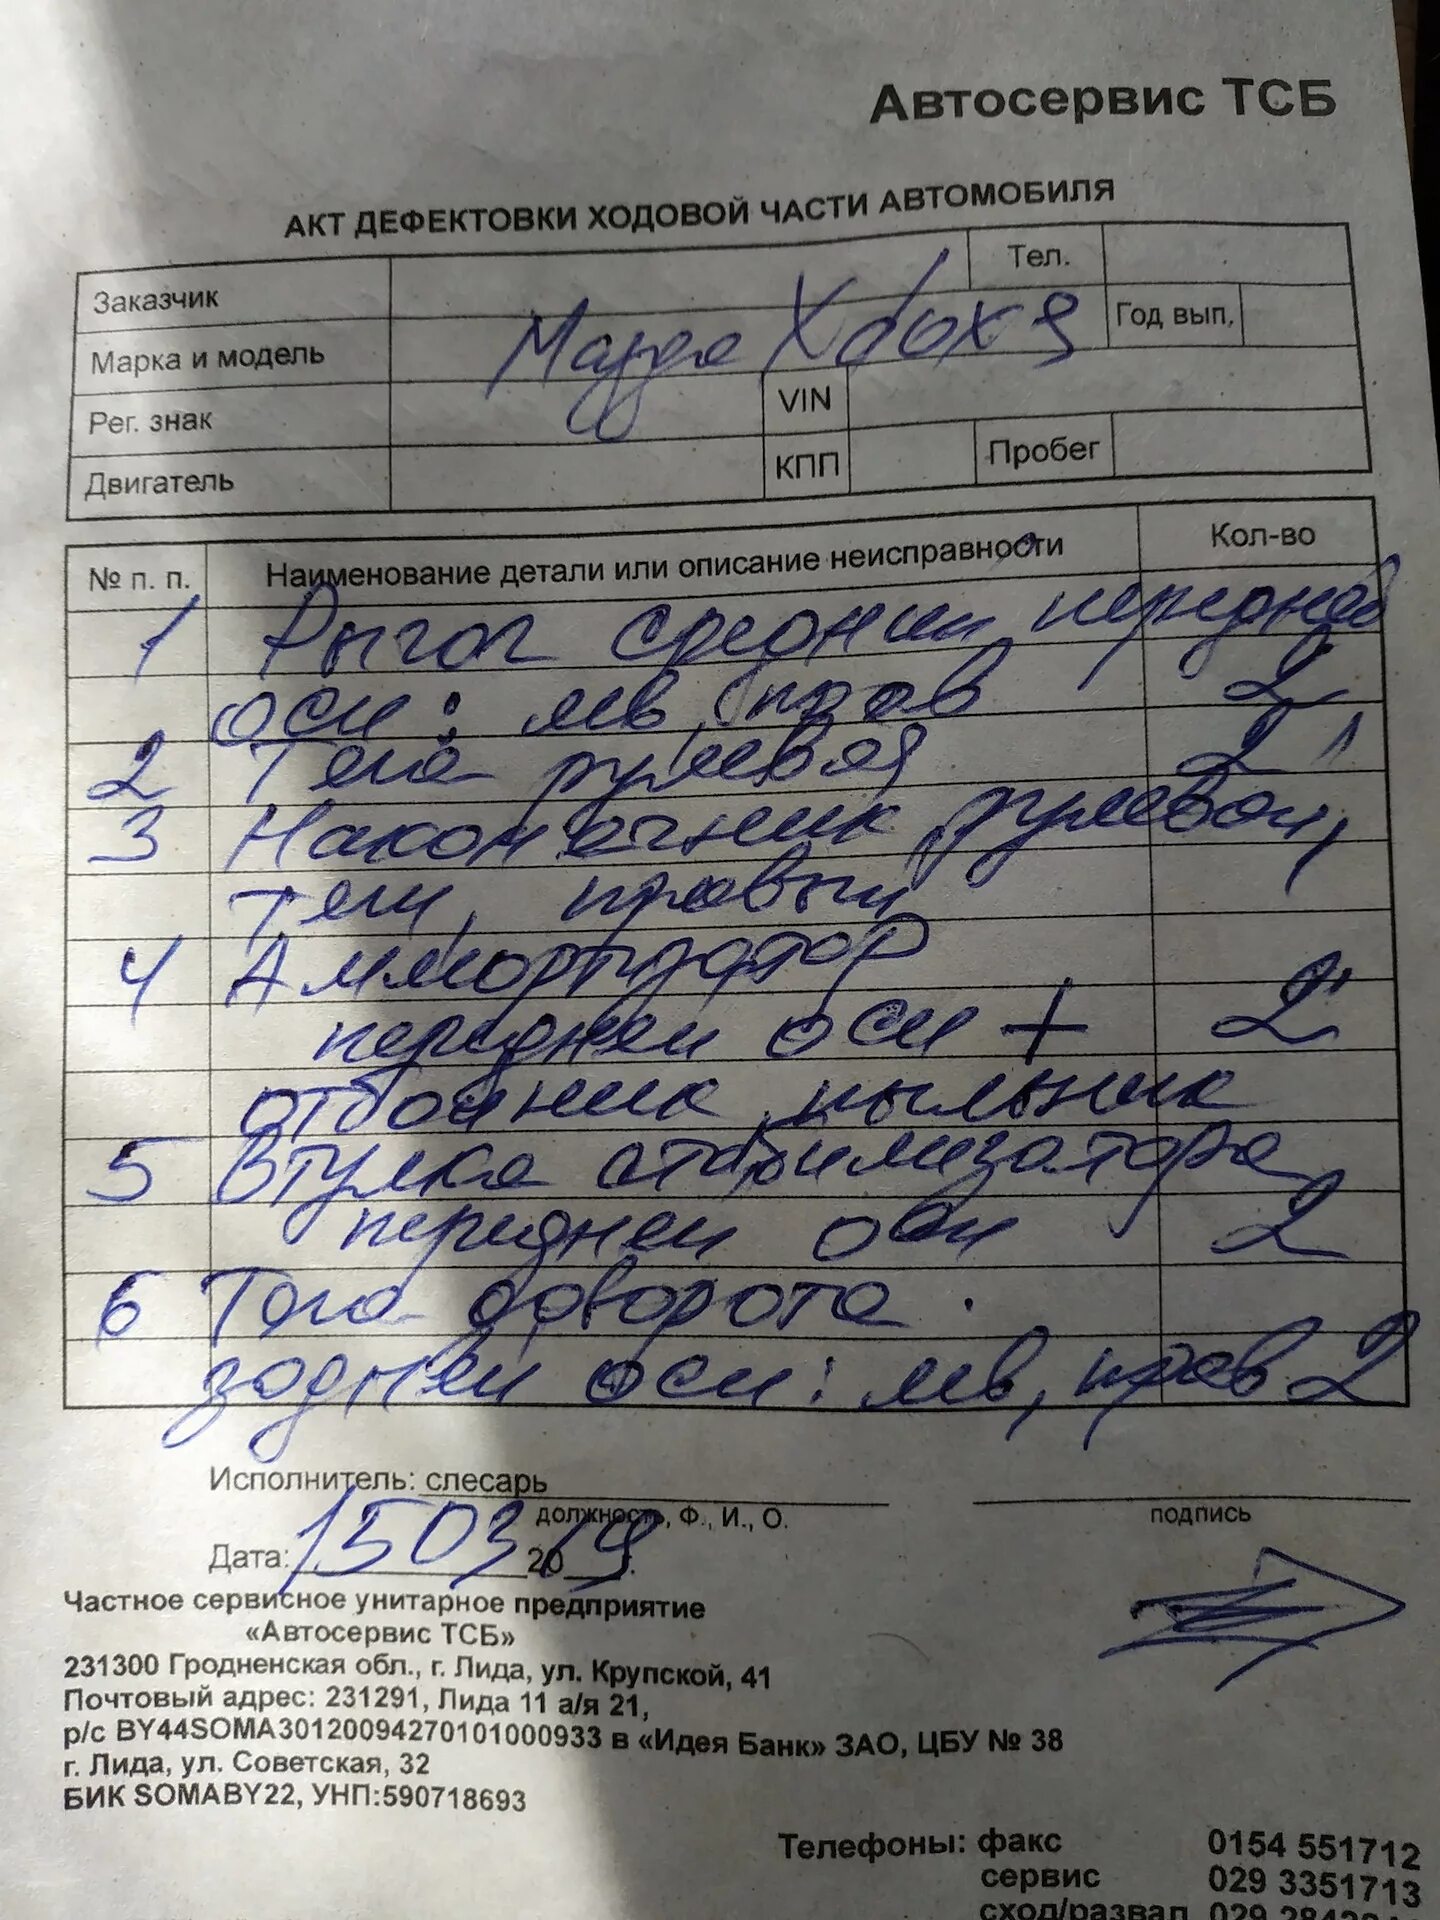 Автосервис ТСБ
АКТ ДЕФЕКТОВКИ ХОДОВОЙ ЧАСТИ АВТОМОБИЛЯ
Заказчик Тел.
Марка и модель Мазда Год вып.
Рег. знак VIN
Двигатель КПП Пробег
№ п. п. Наименование детали или описание неисправности Кол-во
1 Рычаг средний передней
оси: лев, прав 2
2 Тяга рулевая 2
3 Наконечник рулевой
тяги, правый 1
4 Аммортизатор
передней оси + 2
отбойник, пыльник
5 Втулка стабилизатора
передней оси 2
6 Тяга доворота
задней оси: лев, прав 2
Исполнитель: слесарь
должность, Ф., И., О. подпись
Дата: 15 03 2019 г.
Частное сервисное унитарное предприятие
«Автосервис ТСБ»
231300 Гродненская обл., г. Лида, ул. Крупской, 41
Почтовый адрес: 231291, Лида 11 а/я 21,
р/с BY44SOMA30120094270101000933 в «Идея Банк» ЗАО, ЦБУ № 38
г. Лида, ул. Советская, 32
БИК SOMABY22, УНП:590718693
Телефоны: факс 0154 551712
сервис 029 3351713
сход/развал 029